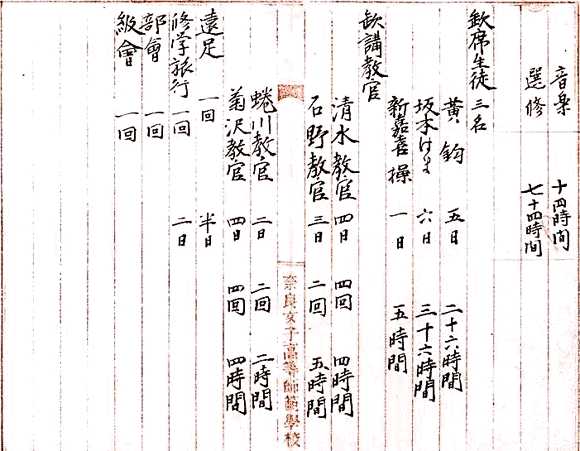 音楽 十四時間
選修 七十四時間
欽席生徒 三名
黄 鈞 五日 二十六時間
坂本けさ 六日 三十六時間
新嘉喜 操 一日 五時間
欽講教官
清水教官 四日 四回 四時間
石野教官 三日 二回 五時間
奈良女子高等師範學校
蜷川教官 二日 二回 二時間
菊沢教官 四日 四回 四時間
遠足 一回 半日
修学旅行 一回 二日
部會 一回
級會 一回